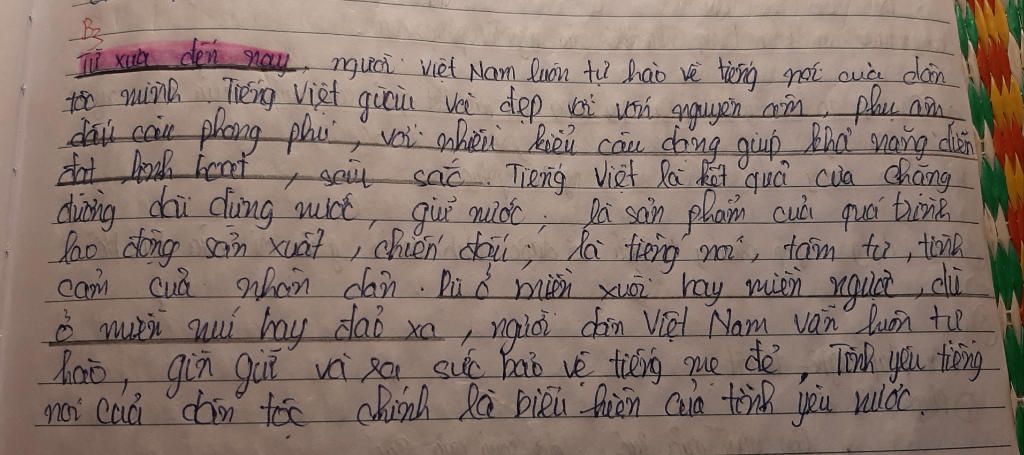 B3
Từ xưa đến nay, người Việt Nam luôn tự hào về tiếng nói của dân
tộc mình. Tiếng Việt giàu và đẹp với vốn nguyên âm, phụ âm,
dấu câu phong phú, với nhiều kiểu câu đáng giúp khả năng diễn
đạt linh hoạt, sâu sắc. Tiếng Việt là kết quả của chặng
đường dài dựng nước, giữ nước; là sản phẩm của quá trình
lao động sản xuất, chiến đấu; là tiếng nói, tâm tư, tình
cảm của nhân dân. Dù ở miền xuôi hay miền ngược, dù
ở miền núi hay đảo xa, người dân Việt Nam vẫn luôn tự
hào, gìn giữ và ra sức bảo vệ tiếng mẹ đẻ. Tình yêu tiếng
nói của dân tộc chính là biểu hiện của tình yêu nước.